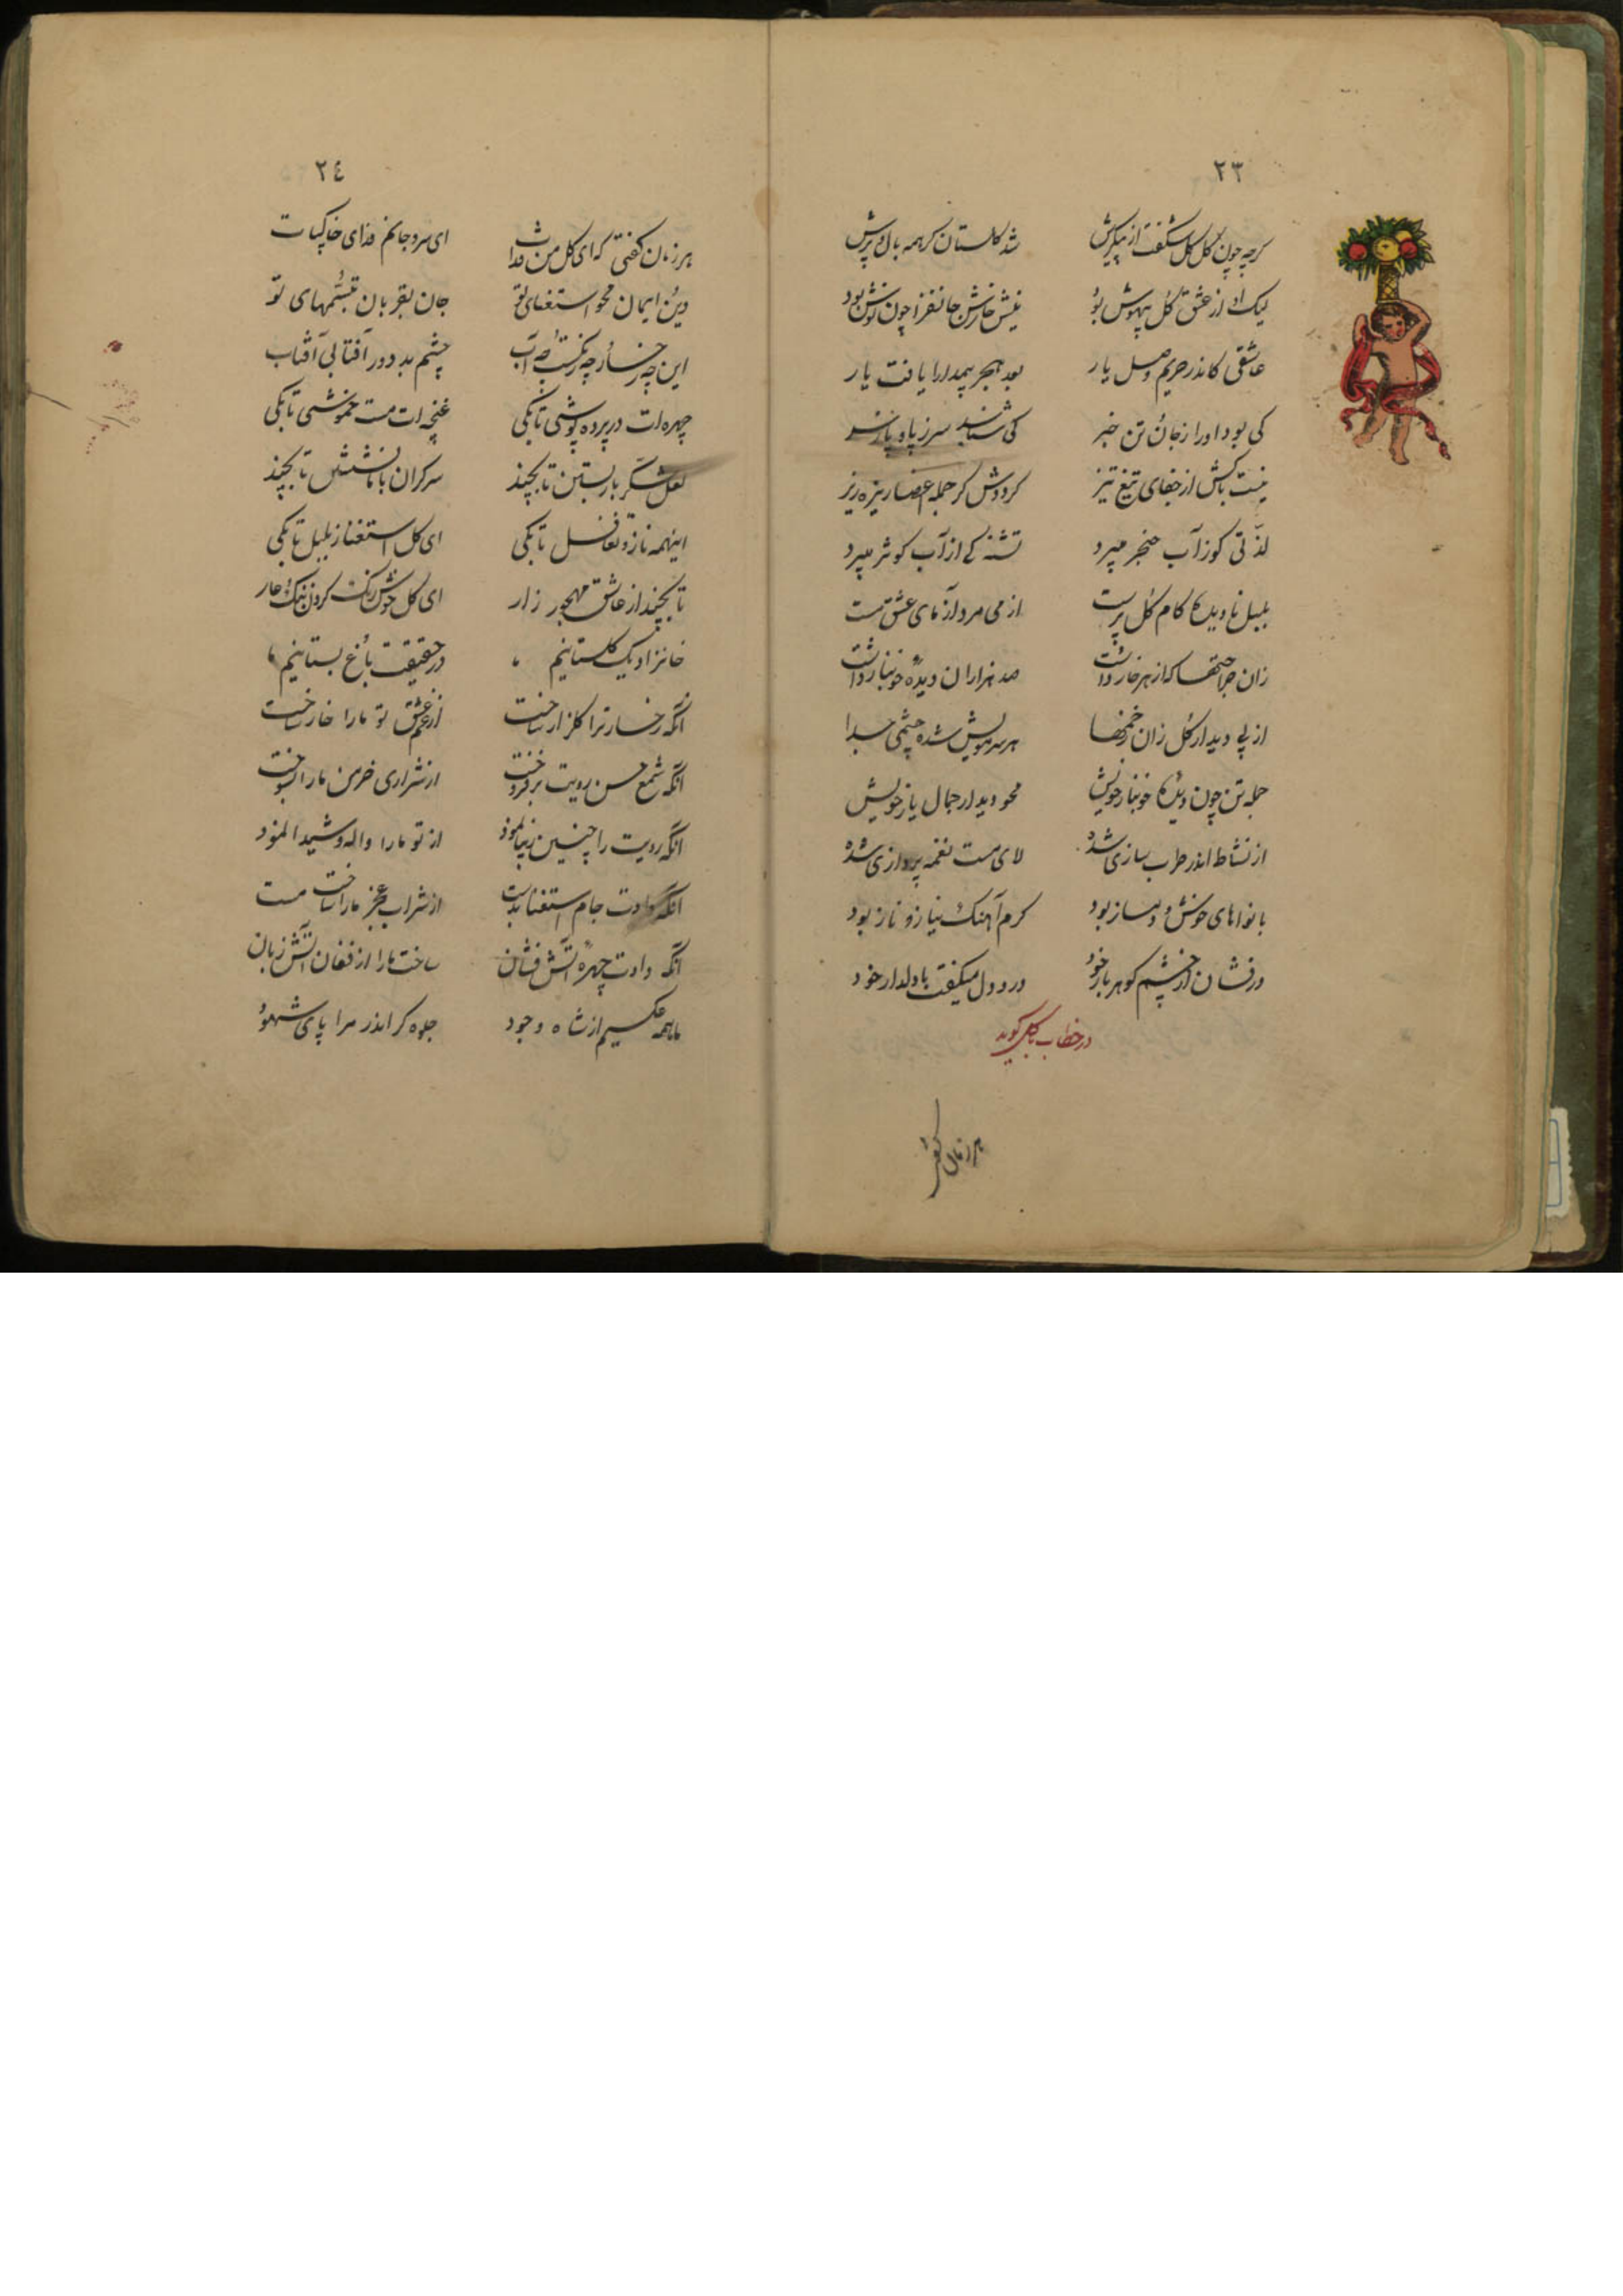 ۲۳
کرچه چون گل گل شکفت از پیکرش شد گلستان کر همه بال و پرش
لیک او از عشق گل بیهوش بود نیش خارش جانفزا چون نوش بود
عاشقی کاندر حریم وصل یار بعد هجر بیمدارا یافت یار
کی بود او را ز جان و تن خبر کی شناسد سر ز پا و پا ز سر
نیست باکش از جفای تیغ تیز کردوش کر جمله اعضا ریزه ریز
لذتی کو ز آب خنجر میبرد تشنه کی از آب کوثر میبرد
بلبل نادیده کام گل پرست از می مرد آزمای عشق مست
زان جراحتها که از هر خار داشت صد هزاران دیده خونبار داشت
از پی دیدار گل زان زخمها هر سر مویش شده چشمی جدا
جمله تن چون دیده خونبار خویش محو دیدار جمال یار خویش
از نشاط اندر طرب سازی شد لای مست نغمه پردازی شده
با نواهای خوش و دمساز بود کرم آهنک نیاز و ناز بود
در فشان از چشم کوهر بار خود درد دل میکفت با دلدار خود
در خطاب با گل کوید
هر زمان کفتی
۲٤
هر زمان کفتی که ای گل من فدات ای سرو جانم فدای خاکپات
دین و ایمان محو استغنای تو جان بقربان تبسمهای تو
این چه رخسار و چه رنکست و چه آب چشم بد دور آفتابی آفتاب
چهره ات در پرده پوشی تا بکی غنچه ات مست خموشی تا بکی
لعل شکر بار بستن تا بچند سرکران با ما نشستن تا بچند
اینهمه ناز و تغافل تا بکی ای گل استغنا ز بلبل تا بکی
تا بچند از عاشق مهجور زار ای گل خوش رنک کردن ننک و عار
خانزاد یک گلستانیم ما در حقیقت باغ بستانیم ما
آنکه رخسار ترا گلزار ساخت از غم عشق تو ما را خار ساخت
آنکه شمع حسن رویت بر فروخت از شراری خرمن ما را بسوخت
آنکه رویت را چنین زیبا نمود از تو ما را واله و شیدا نمود
آنکه دادت جام استغنا بدست از شراب عجز ما را ساخت مست
آنکه دادت چهره آتش فشان ساخت ما را از فغان آتش زبان
ما همه عکسیم از شاه وجود جلوه کر اندر مرا یای شهود